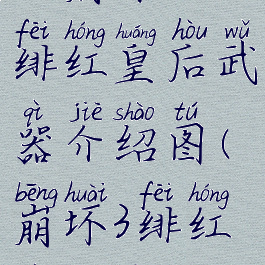 fēi hóng huáng hòu wǔ
绯红皇后武
qì jiè shào tú
器介绍图(
bēng huài fēi hóng
崩坏3绯红